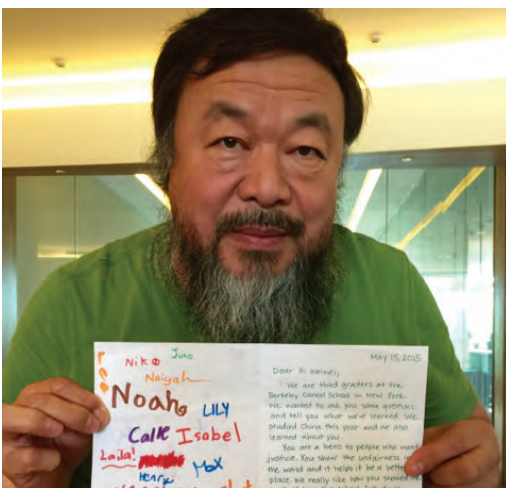 Leo
Niko
Juno
Naiyah
Noah
LILY
Calle Isabel
Laila!
Henry
Max
May 15, 2015
Dear Ai Weiwei,
We are third graders at the
Berkeley Carroll School in New York.
We wanted to ask you some questions
and tell you what we've learned. We
studied China this year and we also
learned about you.
You are a hero to people who want
justice. You show the unfairness in
the world and it helps it be a better
place. We really like how you showed